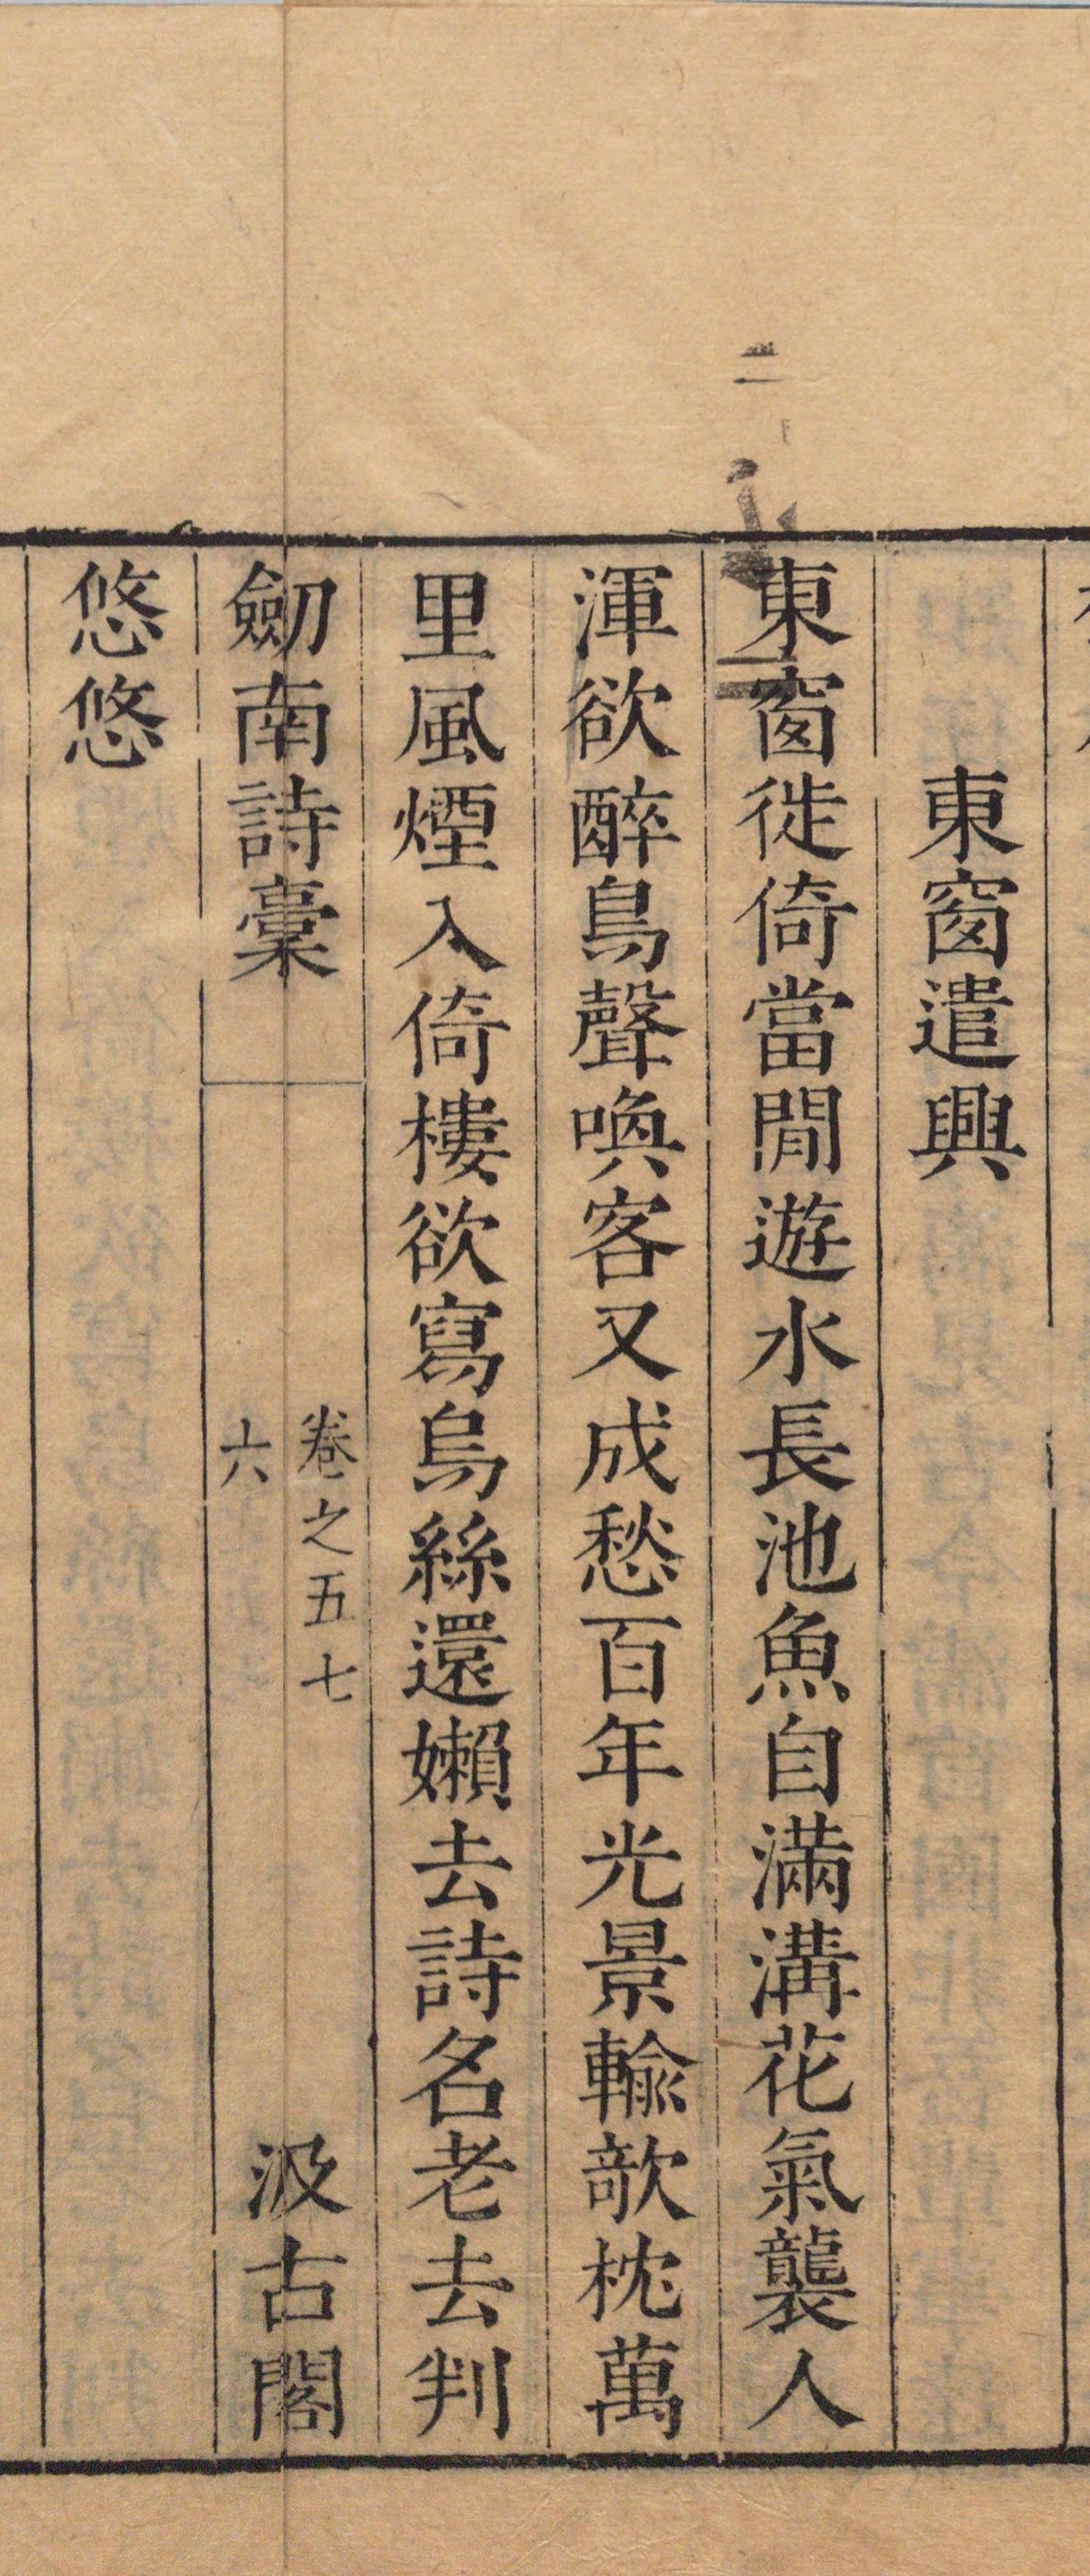 東窗遣興
東窗徙倚當閒遊水長池魚自滿溝花氣襲人
渾欲醉鳥聲喚客又成愁百年光景輸欹枕萬
里風煙入倚樓欲寫烏絲還嬾去詩名老去判
劒南詩稾 卷之五七 六 汲古閣
悠悠